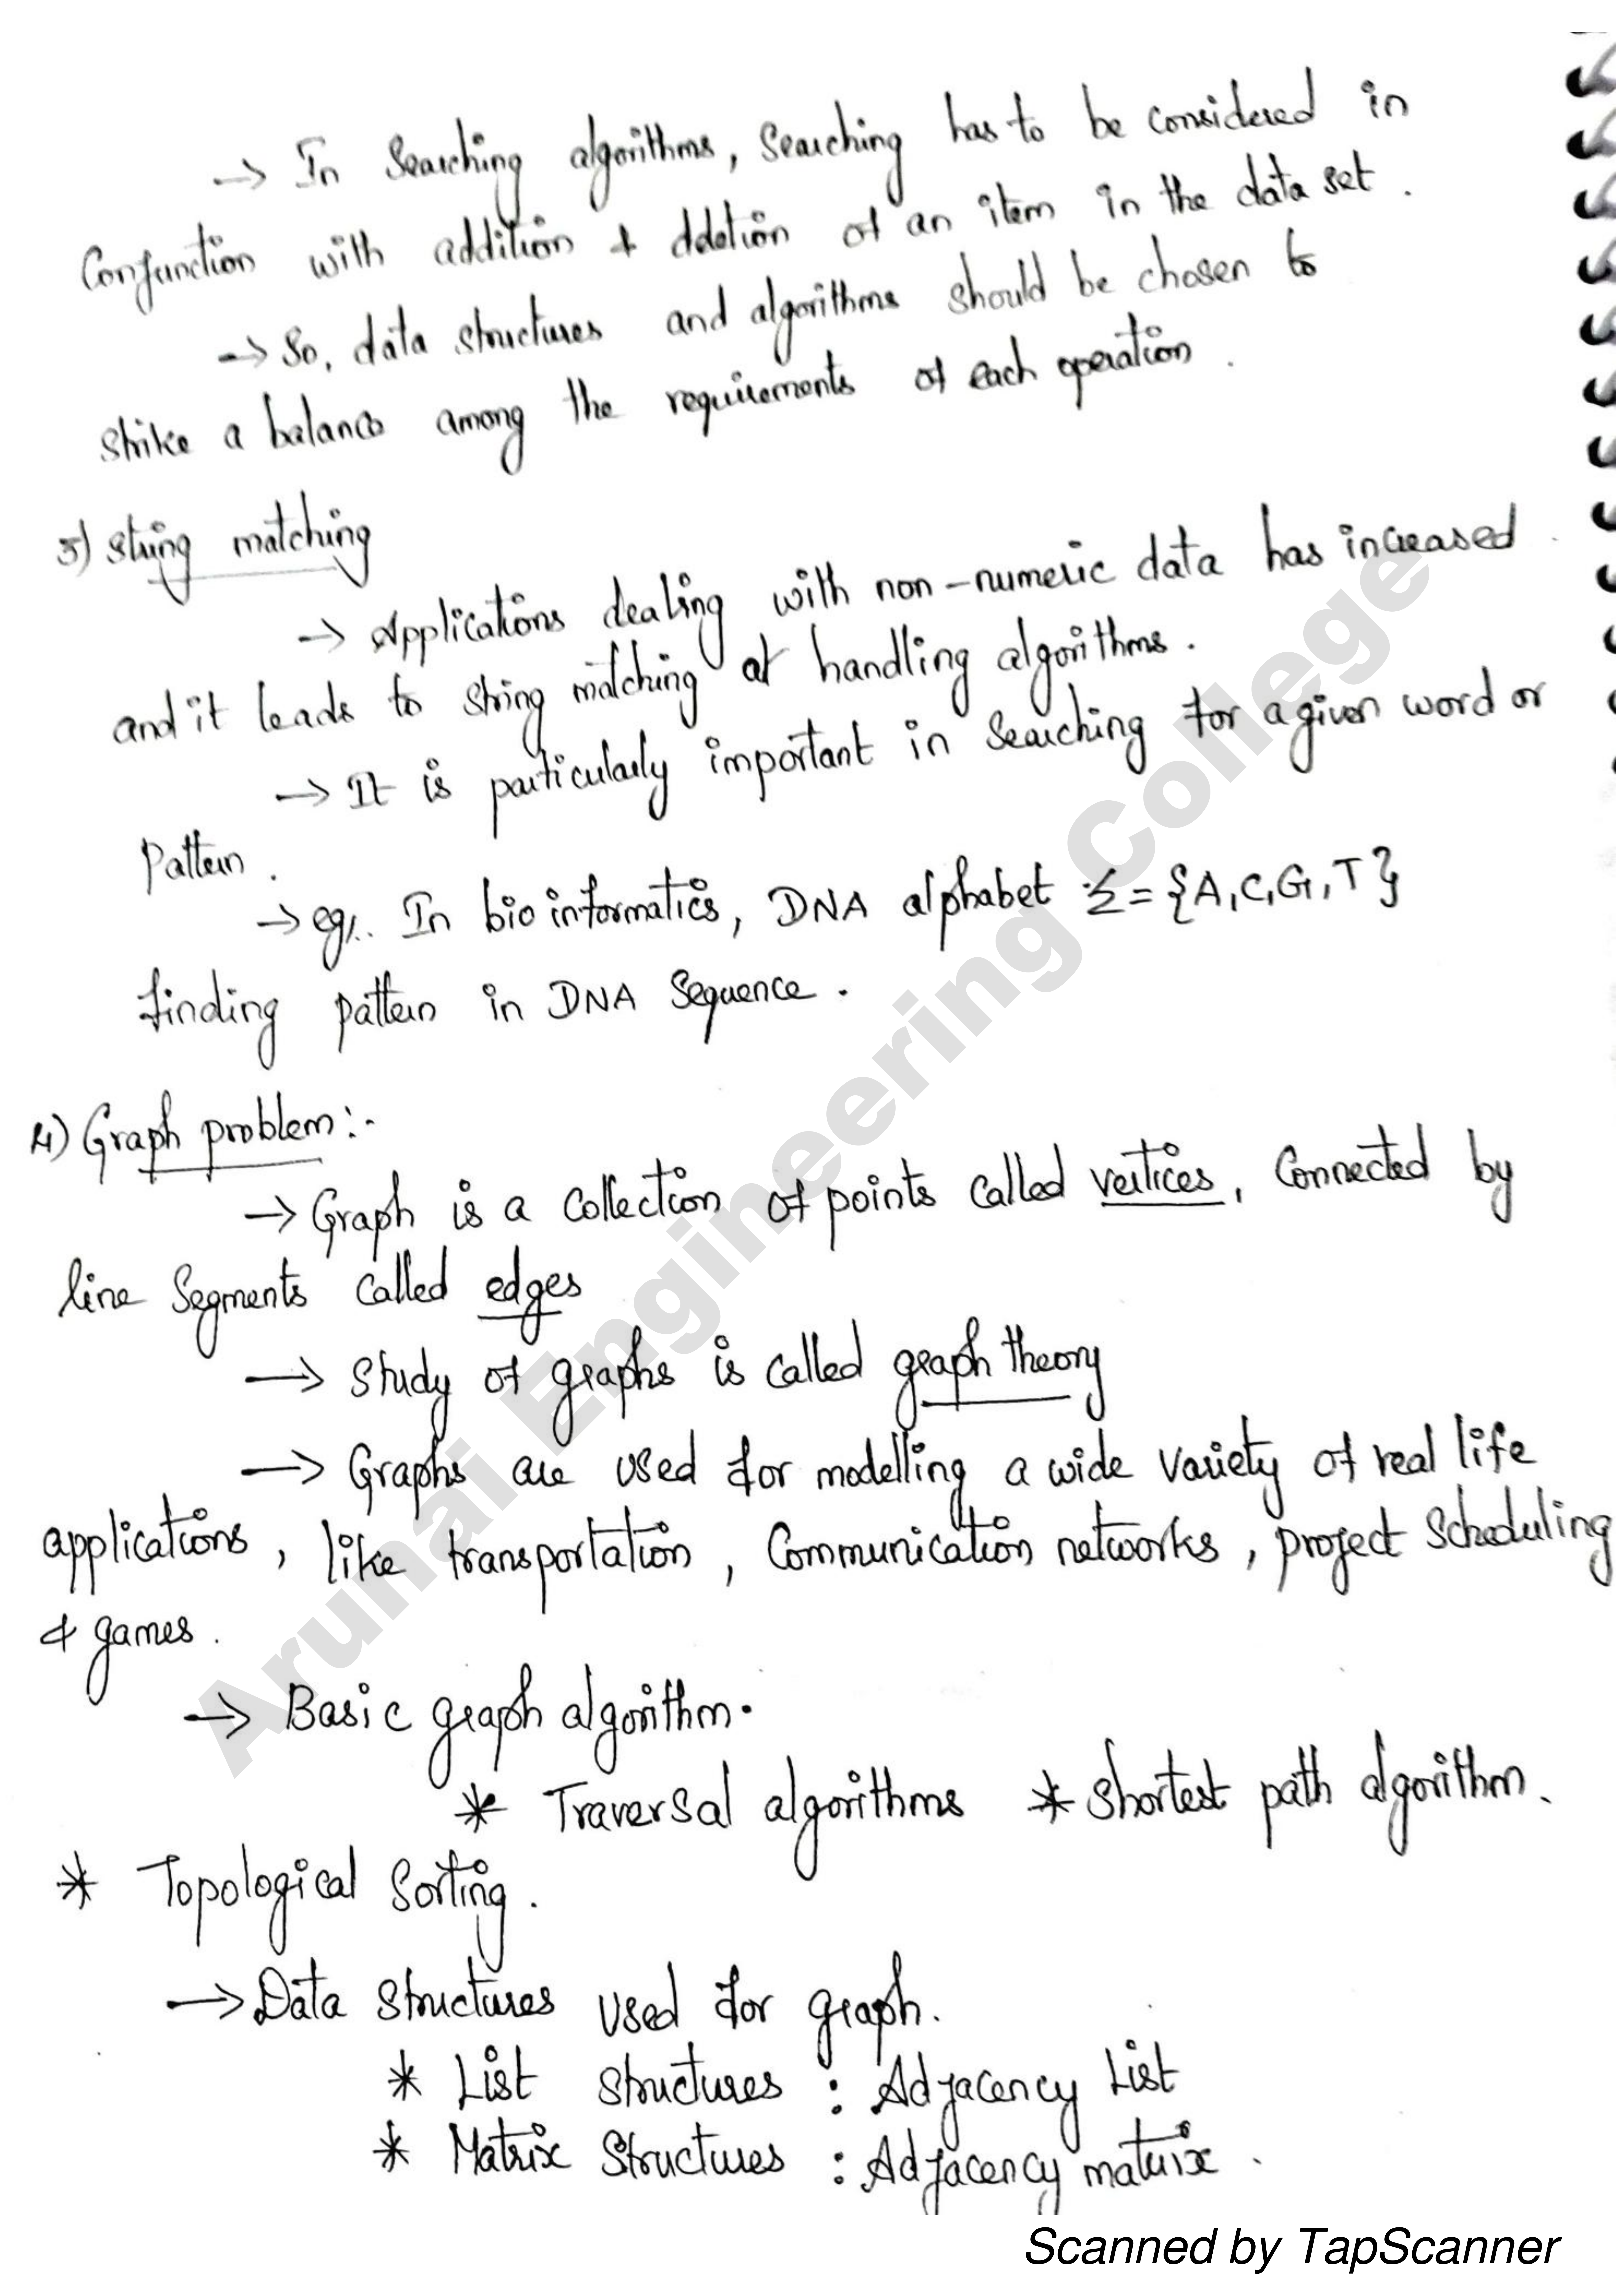 → In Searching algorithms, Searching has to be considered in
Conjunction with addition & deletion of an item in the data set.
→ So, data structures and algorithms should be chosen to
strike a balance among the requirements of each operation.
3) String matching
→ Applications dealing with non-numeric data has increased
and it leads to string matching at handling algorithms.
→ It is particularly important in Searching for a given word or
Pattern.
→ eg:. In bio informatics, DNA alphabet Σ = {A, C, G, T}
finding pattern in DNA Sequence.
4) Graph problem:-
→ Graph is a collection of points called vertices, Connected by
line Segments called edges
→ Study of graphs is called graph theory
→ Graphs are used for modelling a wide variety of real life
applications, like transportation, Communication networks, project Scheduling
& games.
→ Basic graph algorithm.
* Traversal algorithms * Shortest path algorithm.
* Topological Sorting.
→ Data Structures used for graph.
* List Structures : Adjacency List
* Matrix Structures : Adjacency matrix.
Arunai Engineering College
Scanned by TapScanner